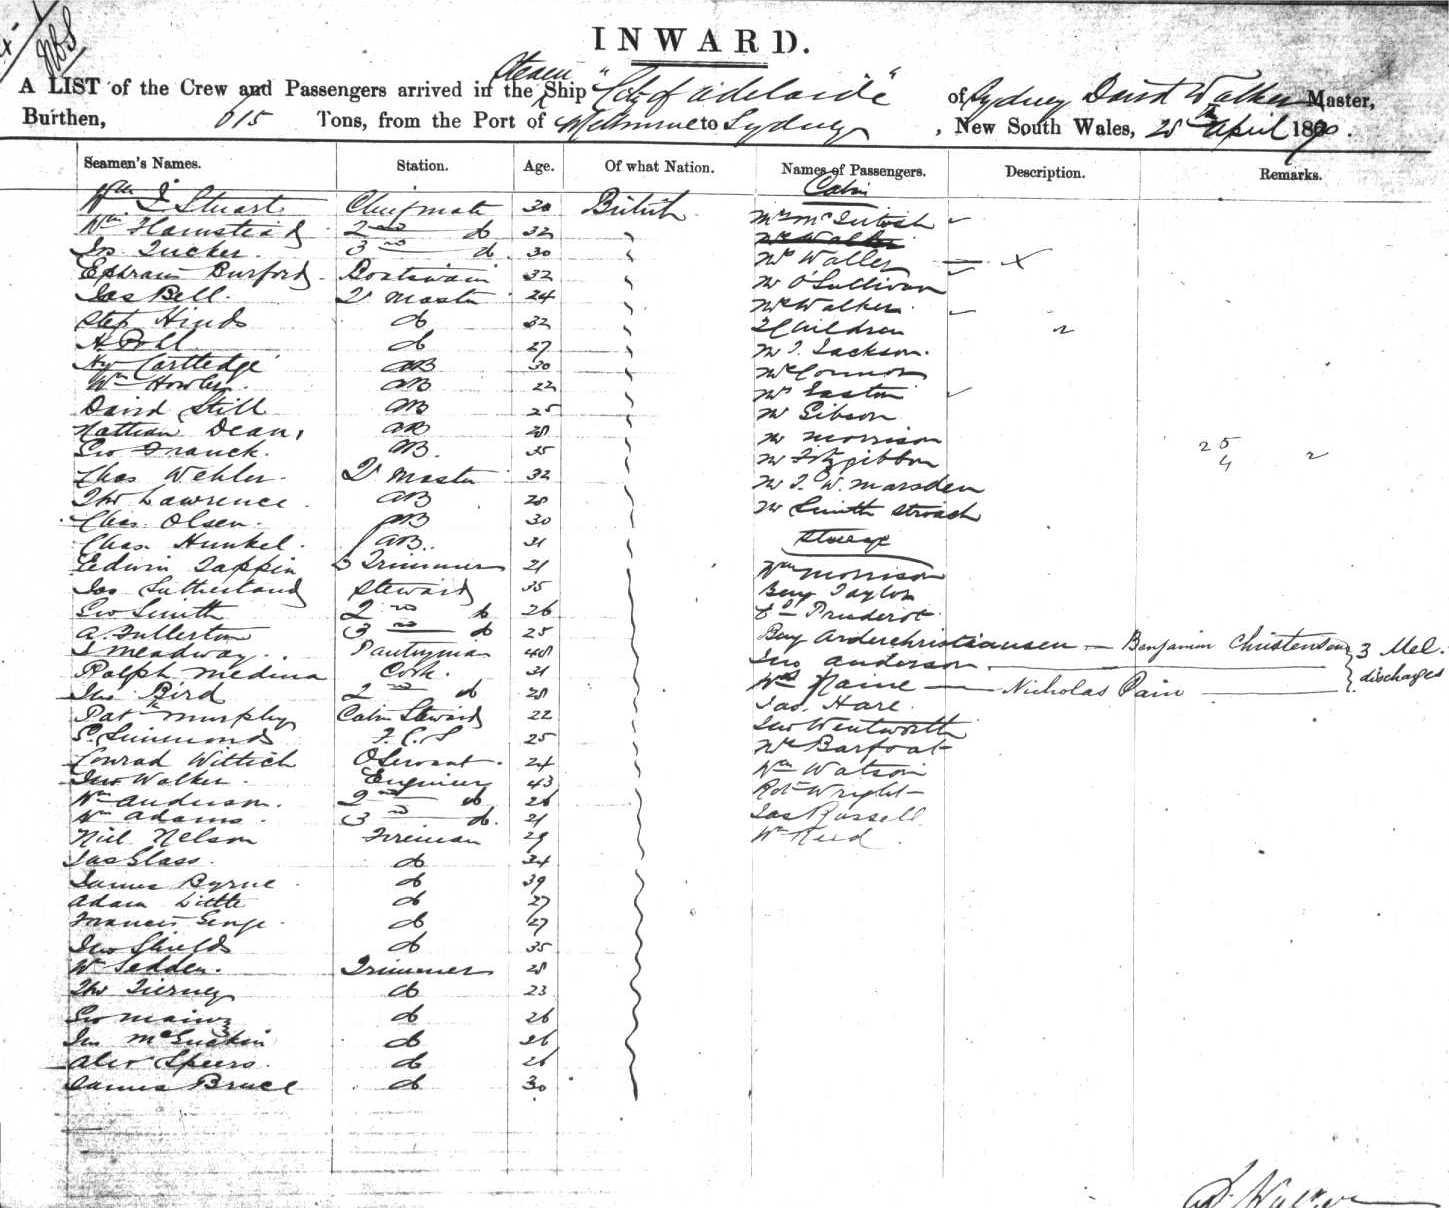 INWARD.
A LIST of the Crew and Passengers arrived in the Steam Ship "City of Adelaide" of Sydney David Walker Master,
Burthen, 615 Tons, from the Port of Melbourne to Sydney, New South Wales, 28th April 1870.
Seamen's Names. Station. Age. Of what Nation. Names of Passengers. Description. Remarks.
Cabin
Wm Stuart Chief mate 30 British Mrs McIntosh
Wm Flamstead 2nd do 32
Jas Tucker. 3rd do 30 Mr Waller X
Ephraim Burford Boatswain 32 Mr O'Sullivan
Jas Bell. Qr Master 24 Mrs Walker
Step Hinds do 32 2 Children 2
A. Poll do 27 Mr J. Jackson.
Hy Carttedge AB 30 McConnor
Wm Howler AB 22 Mrs Easton
David Still AB 25 Mr Gibson
Nathan Dean, AB 28 Mr Morrison 25
Geo Franck. AB. 35 Mr Fitzgibbon 4 2
Chas Wehler. Qr Master 32 Mr J. W. Marsden
Thos Lawrence AB 28 Mr Smith Stroach
Chas. Olsen. AB 30
Chas. Hunkel. AB. 31 Steerage
Edwin Tappin Trimmer 21 Wm Morrison
Jas Sutherland Steward 35 Benj Taylor
Geo Smith 2nd do 26
A. Fullerton 3 do 25 Benj Anderchristiansen — Benjamin Christenson 3 Mel.
J Meadway. Pantryman 48 Jno Anderson discharges
Ralph Medina Cook. 31 Nicholas Pain
Jno Bird 2nd do 28 Jas. Hare.
Pat Murphy Cabin Steward 22 Jno Wentworth
S. Simmonds F. C. S 25 Barfoat
Conrad Wittich O Servant. 24 Wm Watson
Jno Walker. Engineer 43 Rob Wright
Wm Anderson. 2nd do 26 Jas Russell
Wm Adams. 3rd do. 21 Wm Reed
Niel Nelson Fireman 29
Jas Glass. do 34
James Byrne do 39
Adam Little do 27
Francis George do 27
Jno Shields do 35
Wm Sedden. Trimmer 28
Thos Tierney do 23
Geo do 26
Jno McGuckin do 26
Alex Speers. do 26
James Bruce do 30
D. Walker